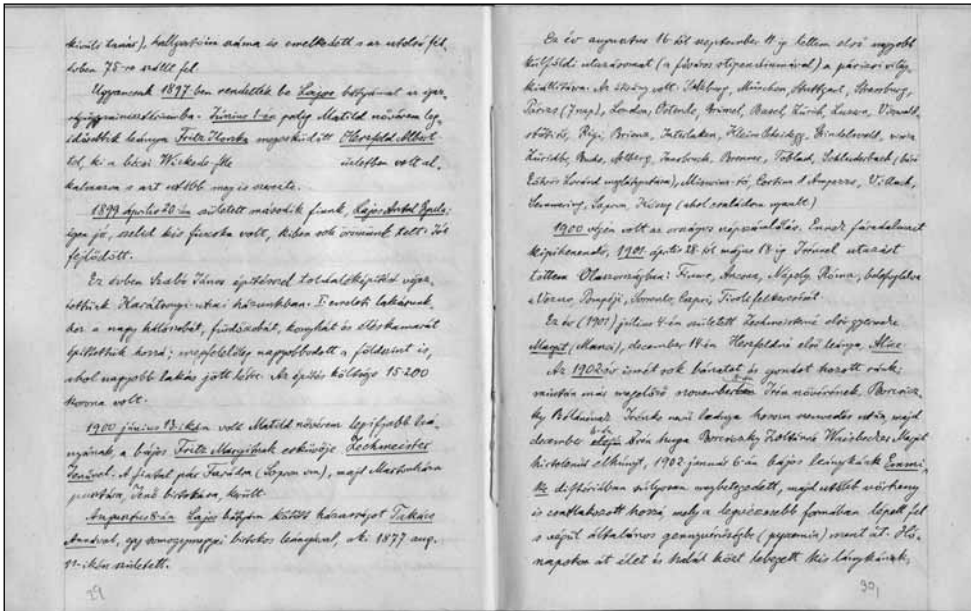 kivüli tanár), hallgatóim száma is emelkedett s az utolsó fél-
évben 75-re szállt fel.
Ugyancsak 1897-ben rendelték be Lajos bátyámat az igaz-
ságügyminisztériumba. Június 1-én pedig Matild nővérem leg-
idősebbik leánya Fritz Ilonka megesküdött Herzfeld Albert-
tel, ki a bécsi üzletben volt al-
kalmazva s azt utóbb meg is szerezte.
1899 április 20-án született második fiunk, Lajos Antal Gyula;
igen jó, szelid kis fiucska volt, kiben sok örömünk telt. Jól
fejlődött.
Ez évben Szabó János építésszel toldaléképítést végez-
tettünk utcai házunkban. I. emeleti lakásunk-
hoz a nagy hálószobát, fürdőszobát, konyhát és éléskamarát
építtettük hozzá; megfelelőleg nagyobbodott a földszint is,
ahol nagyobb lakás jött létre. Az építés költsége 15.200
korona volt.
1900 június 13-ikán volt Matild nővérem legifjabb leá-
nyának, a bájos Fritz Margitnak esküvője Zechmeister
Jenővel. A fiatal pár (Sopron vm), majd
pusztára, Jenő birtokára, került.
Augusztus 8-án Lajos bátyám kötött házasságot Takács
Annával, egy somogymegyei birtokos leányával, aki 1877 aug.
-ikén született.
29
Ez év augusztus 16-tól szeptember 11-ig tettem első nagyobb
külföldi utazásomat (a főváros stipendiumával) a párizsi világ-
kiállításra. Az útirány volt: Salzburg, München, Stuttgart, Strassburg,
Párizs (7 nap), London, Ostende, Brüssel, Basel, Zürich, Luzern, Vierwald-
stätti tó, Rigi, Brienz, Interlaken, Kleine Scheidegg, Grindelwald, vissza
Zürichbe, Buchs, Arlberg, Innsbruck, Brenner, Toblach, Schluderbach (báró
Eötvös Loránd meglátogatása), Misurina-tó, Cortina d'Ampezzo, Villach,
Semmering, Sopron, Kőszeg (ahol családom nyaralt)
1900 végén volt az országos népszámlálás. Ennek fáradalmait
kipihenendő, 1901 április 28-tól május 18-ig Jenővel utazást
tettem Olaszországban: Fiume, Ancona, Nápoly, Róma, belefoglalva
a Vezuv, Pompéji, Sorrento, Capri, Tivoli felkeresését.
Ez év (1901) július 4-én született Zechmeisterné első gyermeke
Margit (Manci), december 14-én Herzfeldné első leánya, Alice.
Az 1902 év ismét sok bánatot és gondot hozott ránk;
miután már megelőző november Irén nővérének,
Bélánénak, Irénke nevű leánya hosszu szenvedés után, majd
december elején Irén huga Zoltánné Margit
hirtelenül elhúnyt, 1902 január 6-án bájos leánykánk Emmi-
ke diftériában súlyosan megbetegedett, majd utóbb vörheny
is csatlakozott hozzá, mely a legvészesebb formában lépett fel
s végül általános gennyvérűségbe (pyaemia) ment át. Hó-
napokon át élet és halál közt lebegett kis lánykánk,
30